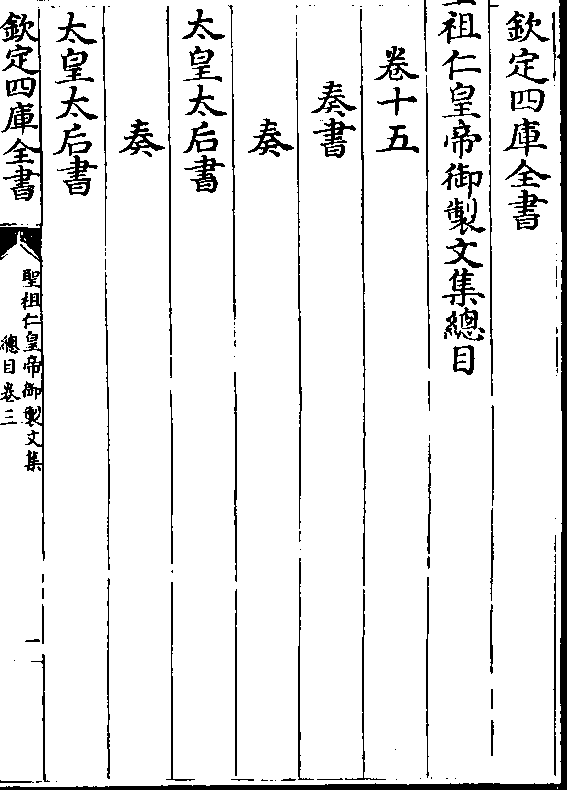 欽定四庫全書
祖仁皇帝御製文集總目
卷十五
奏書
奏
太皇太后書
奏
太皇太后書
欽定四庫全書
聖祖仁皇帝御製文集
總目卷三
一